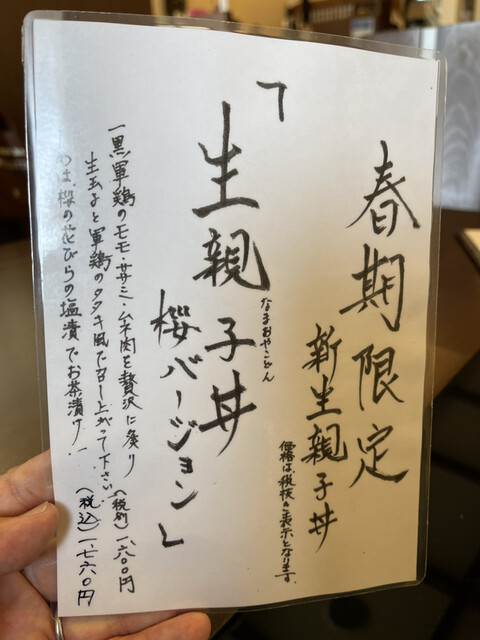 春期限定
新生親子丼
価格は、税抜の表示となります。
「生親子丼
なまおやこどん
桜バージョン」
一黒軍鶏のモモ・ササミ・ムネ肉を贅沢に炙り
生玉子と軍鶏のタタキ風で召し上がって下さい。
〆は、桜の花びらの塩漬でお茶漬け!
(税別)一、六〇〇円
(税込)一、七六〇円